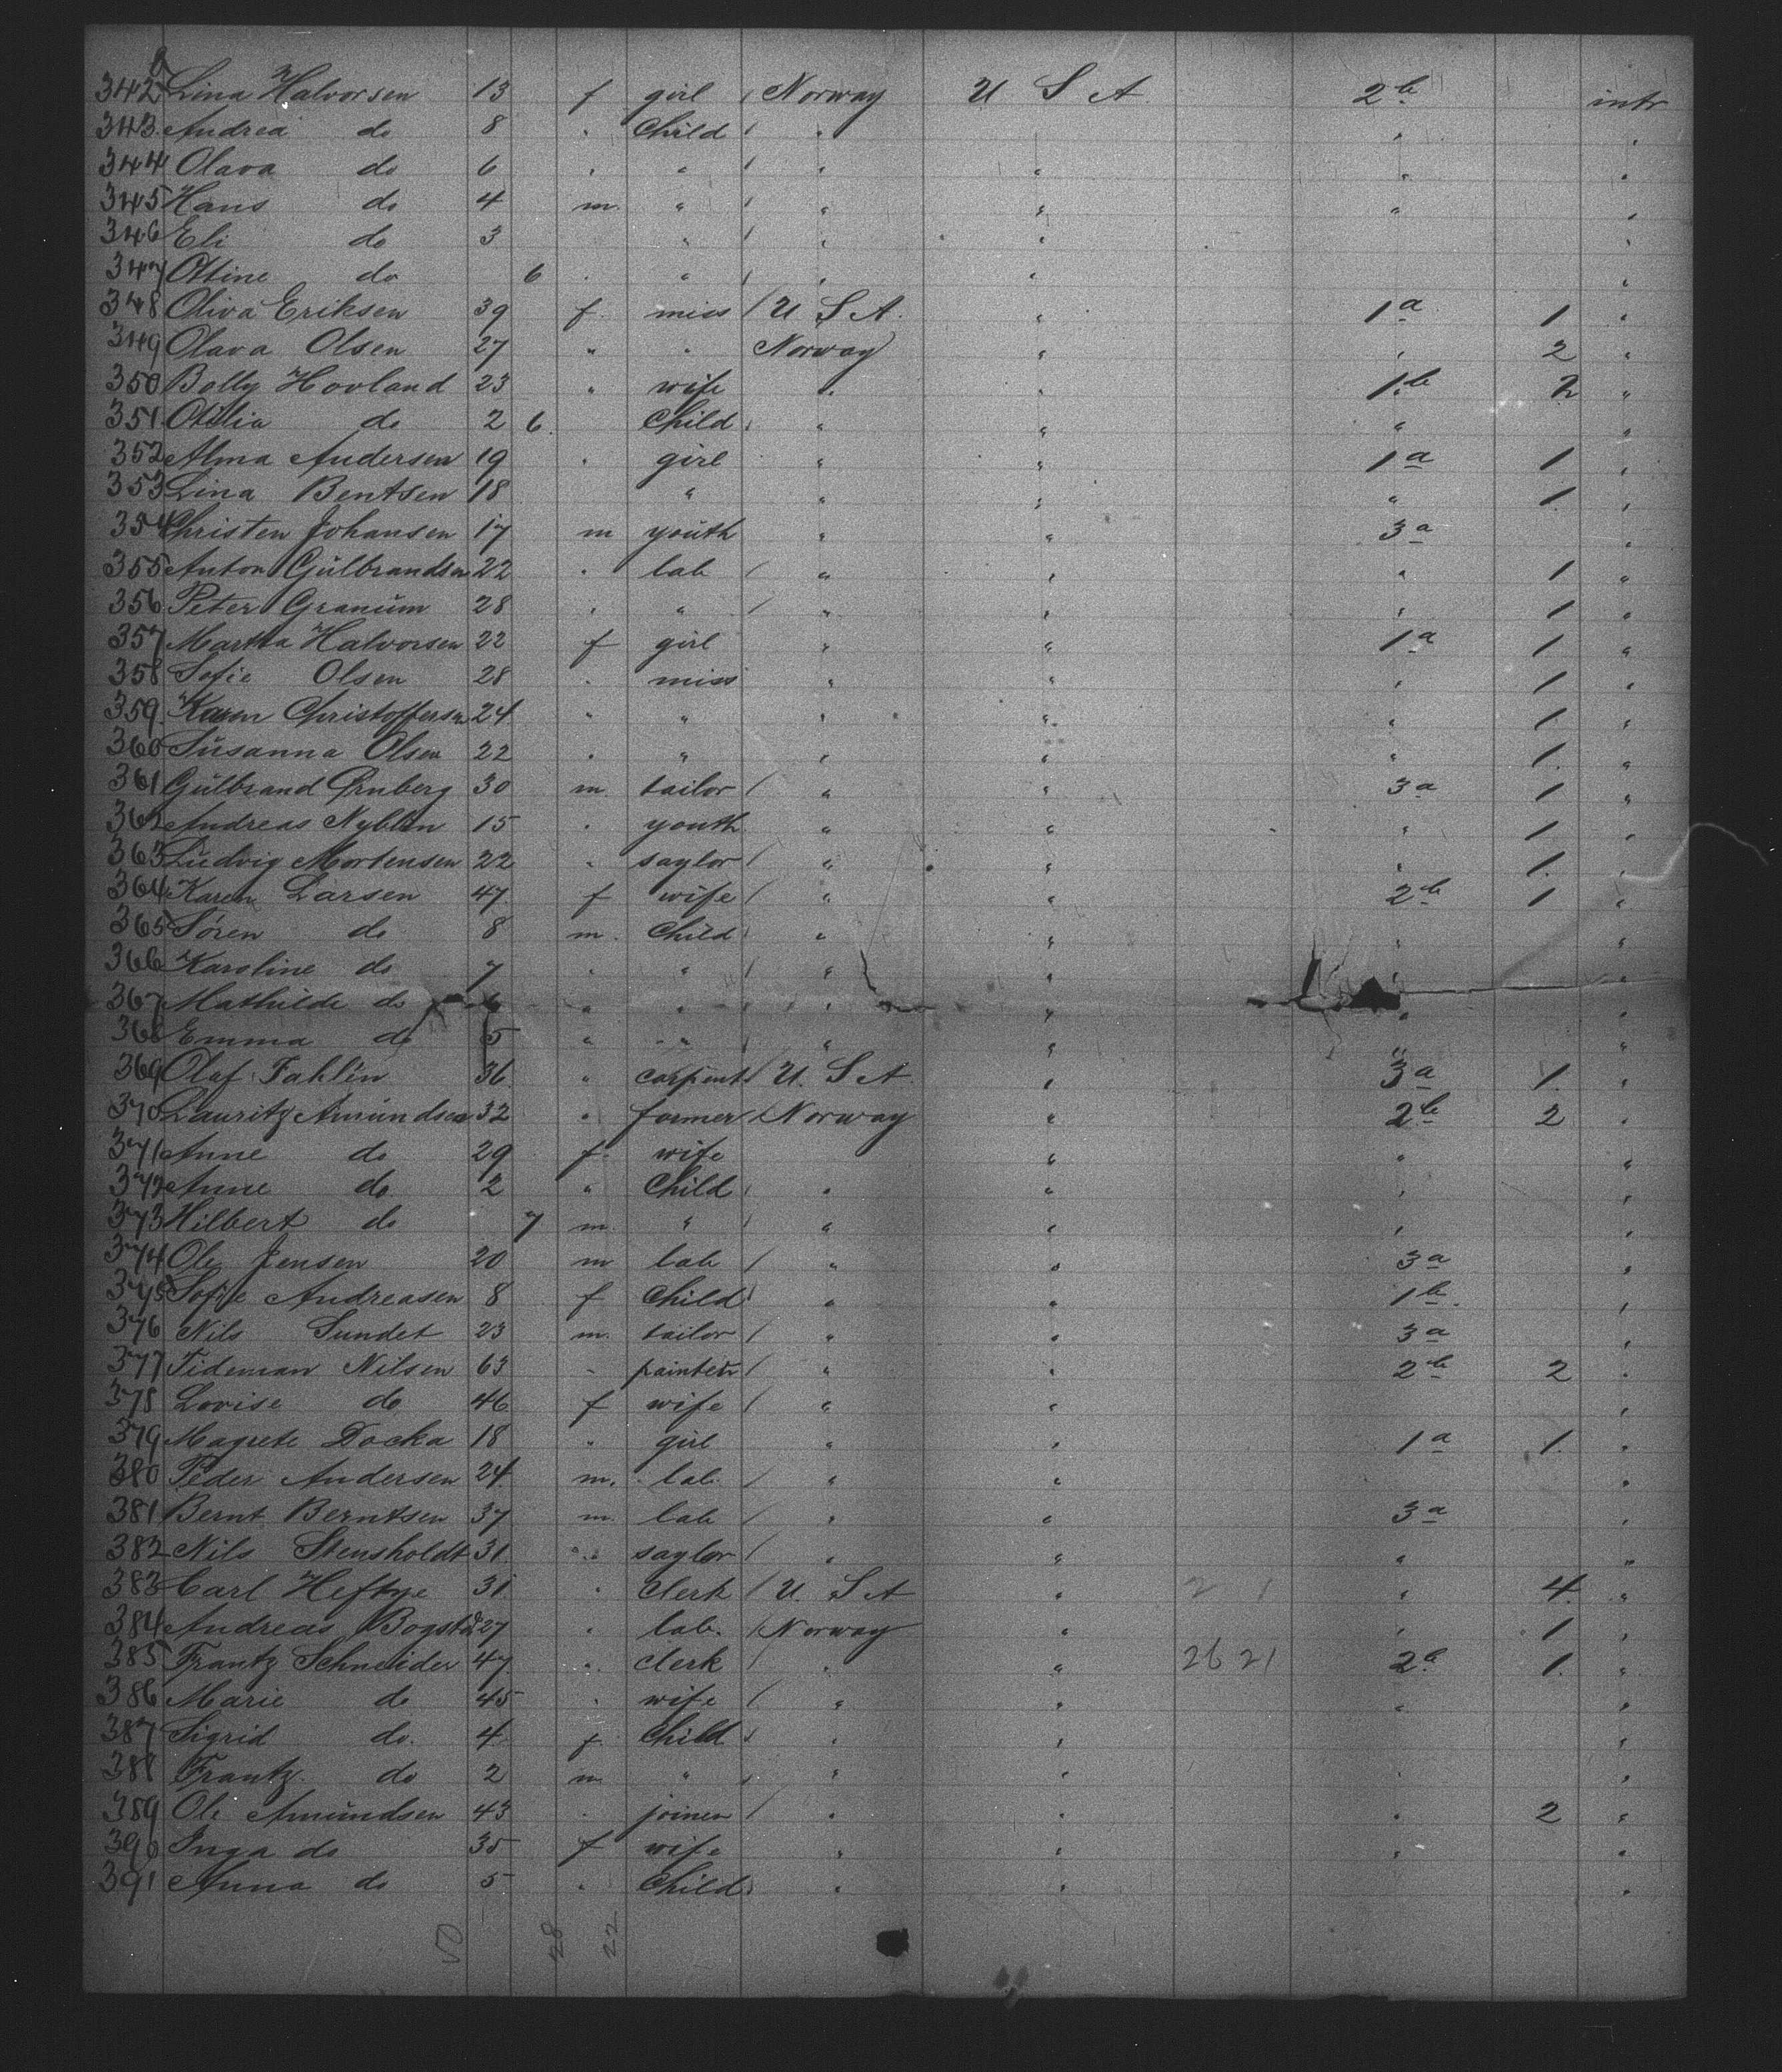 8
342 Lina Halvorsen 13 f girl / Norway U S A 2b intr
343 Andrea do 8 " Child / " " " "
344 Olava do 6 " " / " " " "
345 Hans do 4 m. " / " " " "
346 Eli do 3 " / " " "
347 Ottine do 6 " " / " " "
348 Oliva Eriksen 39 f. miss / U S A. " 1a 1 "
349 Olava Olsen 27 " " Norway " " 2 "
350 Bolly Hovland 23 " wife " " 1b 2 "
351 Otilia do 2 6. Child " " " "
352 Alma Andersen 19 " girl " " 1a 1 "
353 Lina Bentsen 18 " " " " 1. "
354 Christen Johansen 17 m youth " " 3a "
355 Anton Gülbrandsen 22 " lab / " " " 1 "
356 Peter Granüm 28 " " / " " " 1 "
357 Martha Halvorsen 22 f girl " " 1a 1 "
358 Sofie Olsen 28 " miss " " " 1 "
359. Karen Christoffersen 24 " " " " " 1. "
360 Süsanna Olsen 22 " " " " " 1. "
361 Gülbrand 30 m. tailor / " " 3a 1 "
362 Andreas 15 " youth " " " 1 "
363 Ludvig Mortensen 22 " saylor / " " " 1. "
364 Karen Larsen 47. f wife / " " 2b 1 "
365 Sören do 8 m. Child " " " "
366 Karoline do 7 " " / " " " "
367 Mathilde do 6 " " " " " "
368 Emma do 5 " " " " " "
369 Olaf Fahlén 36 " carpent / U. S A " 3a 1. "
370 Lauritz Amündsen 32 " farmer / Norway " 2b 2 "
371 Anne do 29 f. wife " " "
372 Anne do 2 " Child " " " "
373 Hilbert do 7 m. " " " " "
374 Ole Jensen 20 m lab / " " 3a "
375 Sofie Andreasen 8 f Child " " 1b. "
376 Nils Sundet 23 m. tailor / " " 3a "
377 Tideman Nilsen 63 " painter / " " 2b 2 "
378 Lovise do 46 f wife / " " "
379 Magrete Docka 18 " girl " " 1a 1. "
380 Peder Andersen 24. m. lab. / " " "
381 Bernt Berntsen 37 m. lab / " " 3a "
382 Nils Stensholdt 31. " saylor / " " " "
383 Carl Heftye 31. " clerk / U. S A " 2 1 " 4. "
384 Andreas Bogstd 27 " lab. / Norway " " 1 "
385 Frantz Schneider 47 " clerk / " " 26 21 2b 1. "
386 Marie do 45 " wife / " " " "
387 Sigrid do. 4. f Child " " "
388 Frantz. do 2 m " " " " "
389 Ole Amündsen 43 " joiner / " " " 2 "
390 Inga do 35 f wife " " " "
391 Anna do 5 " Child " " "
50 28 22